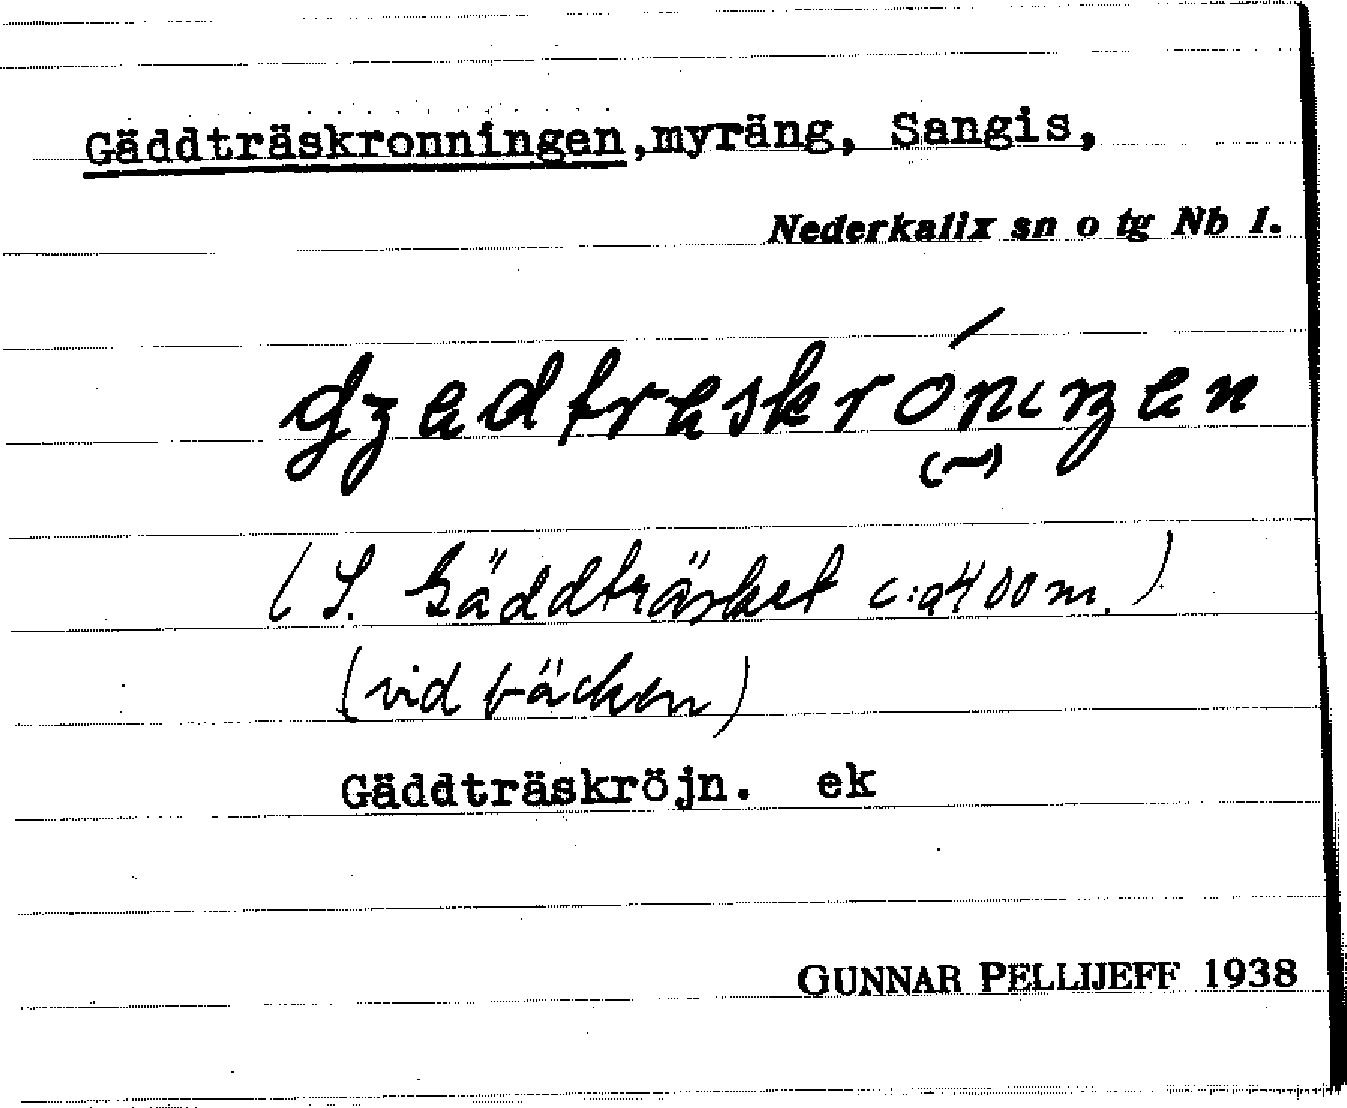 Gäddträskronningen, myräng, Sangis,
Nederkalix sn o tg Nb l.
(S. Gäddträsket c:a 400 m.)
(vid bäcken)
Gäddträskröjn. ek
GUNNAR PELLIJEFF 1938